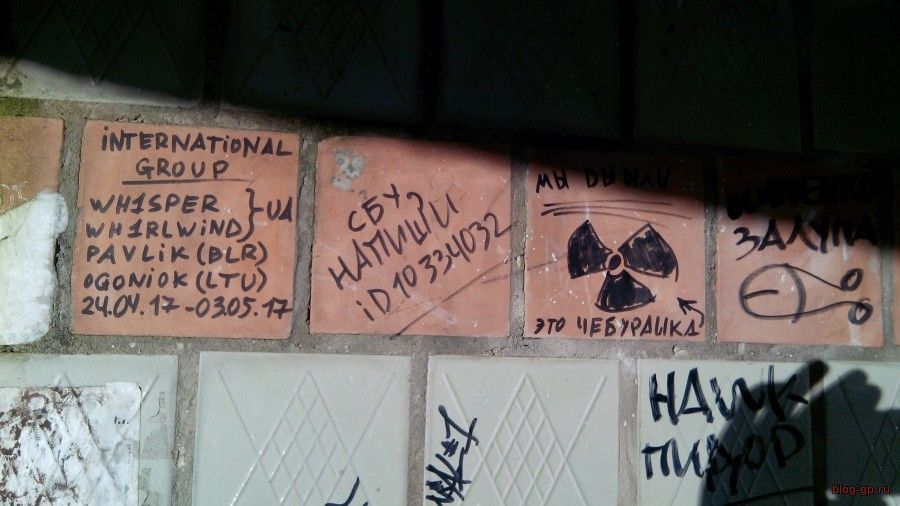 INTERNATIONAL
GROUP
WH1SPER
WH1RLWIND } UA
PAVLIK (BLR)
OGONIOK (LTU)
24.04.17-03.05.17
СБУ
НАПИШИ
iD10334032
МЫ БЫЛИ
ЭТО ЧЕБУРАШКА
ЗАЛУПА
HAWK
ПИДОР
blog-gp.ru